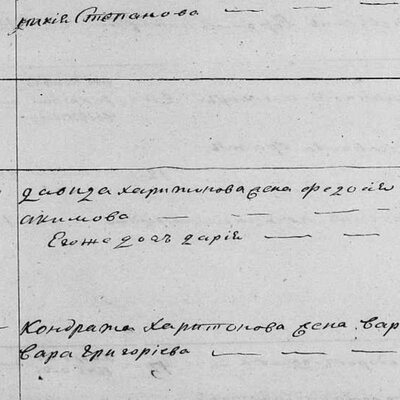 нкія Степанова
давида харитонова жена федосія
акимова
Егоже дочь дарія
Кондрата Харитонова жена вар
вара Григоріева